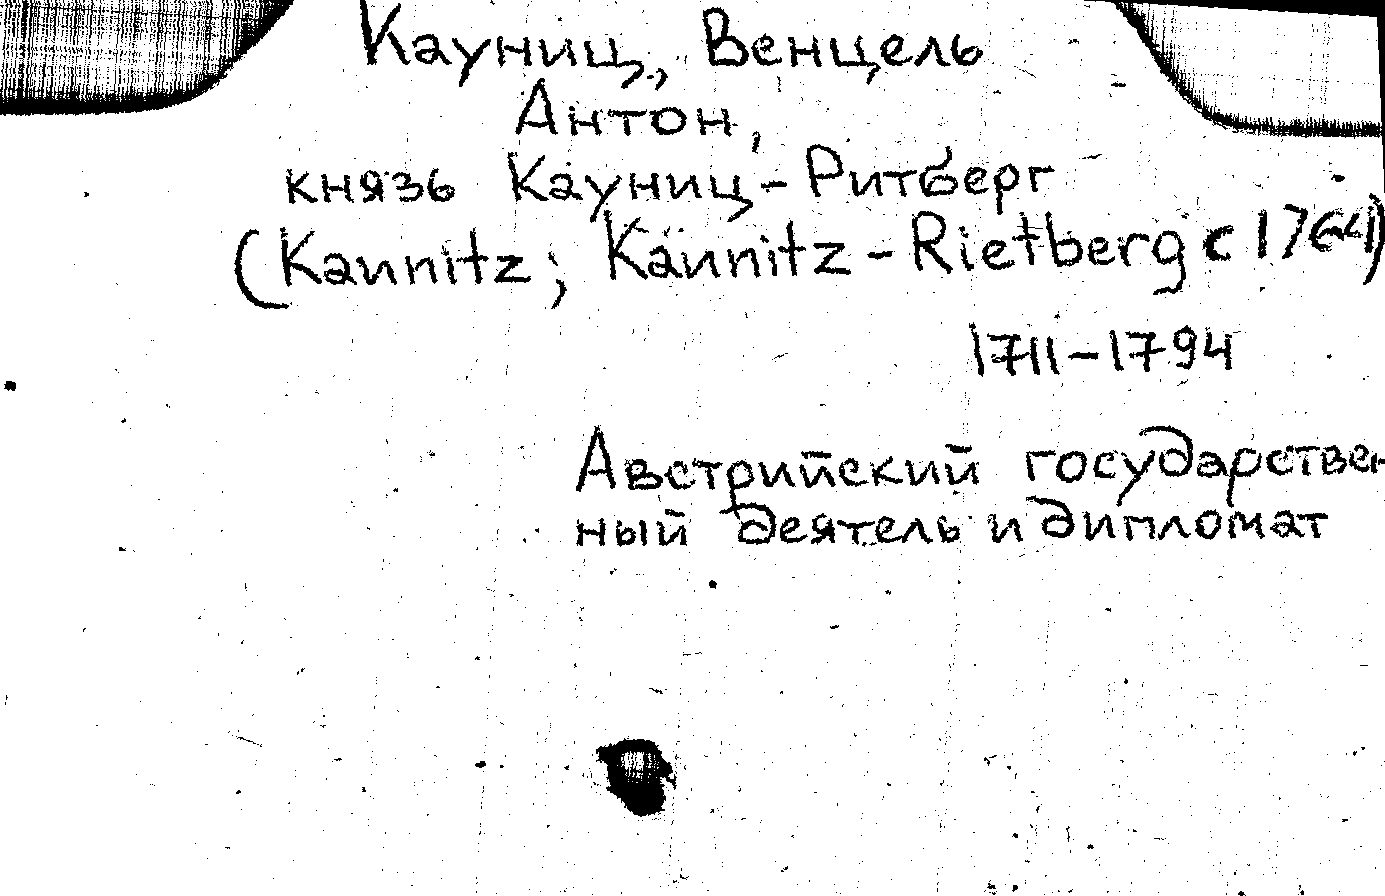 Кауниц, Венцель
Антон,
князь Кауниц-Ритберг
(Kaunitz; Kaunitz-Rietberg с 1764)
1711-1794
Австрийский государствен-
ный деятель и дипломат